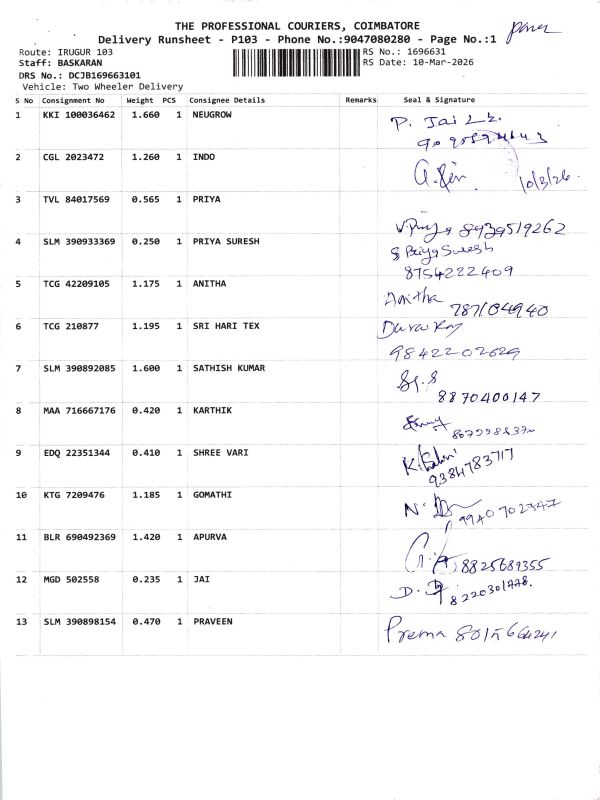 THE PROFESSIONAL COURIERS, COIMBATORE
Delivery Runsheet - P103 - Phone No.:9047080280 - Page No.:1
Route: IRUGUR 103 RS No.: 1696631
Staff: BASKARAN RS Date: 10-Mar-2026
DRS No.: DCJB169663101
Vehicle: Two Wheeler Delivery
S No Consignment No Weight PCS Consignee Details Remarks Seal & Signature
1 KKI 100036462 1.660 1 NEUGROW P. Jai
2 CGL 2023472 1.260 1 INDO 10/3/26
3 TVL 84017569 0.565 1 PRIYA 8939519262
4 SLM 390933369 0.250 1 PRIYA SURESH S Priya Suresh
8754222409
5 TCG 42209105 1.175 1 ANITHA Anitha
787104940
6 TCG 210877 1.195 1 SRI HARI TEX
9842202629
7 SLM 390892085 1.600 1 SATHISH KUMAR
8870400147
8 MAA 716667176 0.420 1 KARTHIK
9 EDQ 22351344 0.410 1 SHREE VARI
9384783717
10 KTG 7209476 1.185 1 GOMATHI
9940702347
11 BLR 690492369 1.420 1 APURVA
8825689355
12 MGD 502558 0.235 1 JAI
8220301778
13 SLM 390898154 0.470 1 PRAVEEN Prema 8015664241